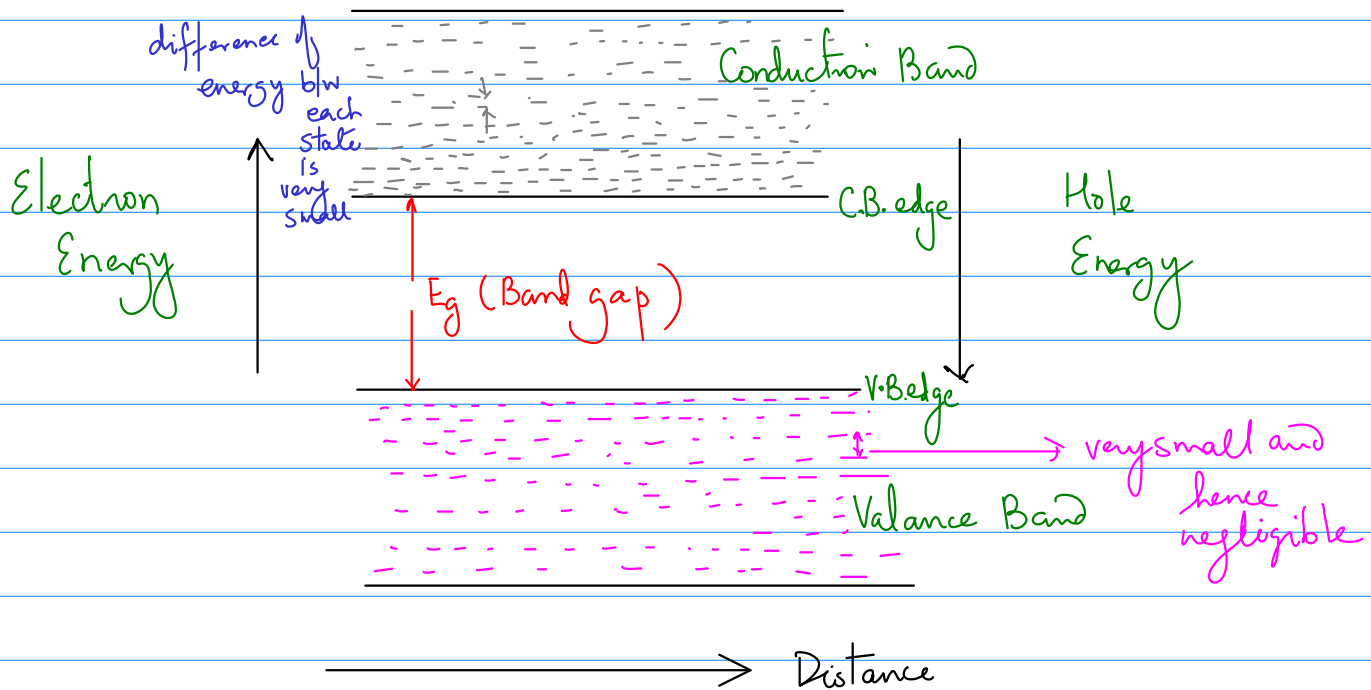 difference of
energy b/w
each
state
is
very
small
Conduction Band
Electron
Energy
C.B. edge
Hole
Energy
Eg (Band gap)
V.B.edge
very small and
hence
negligible
Valance Band
Distance